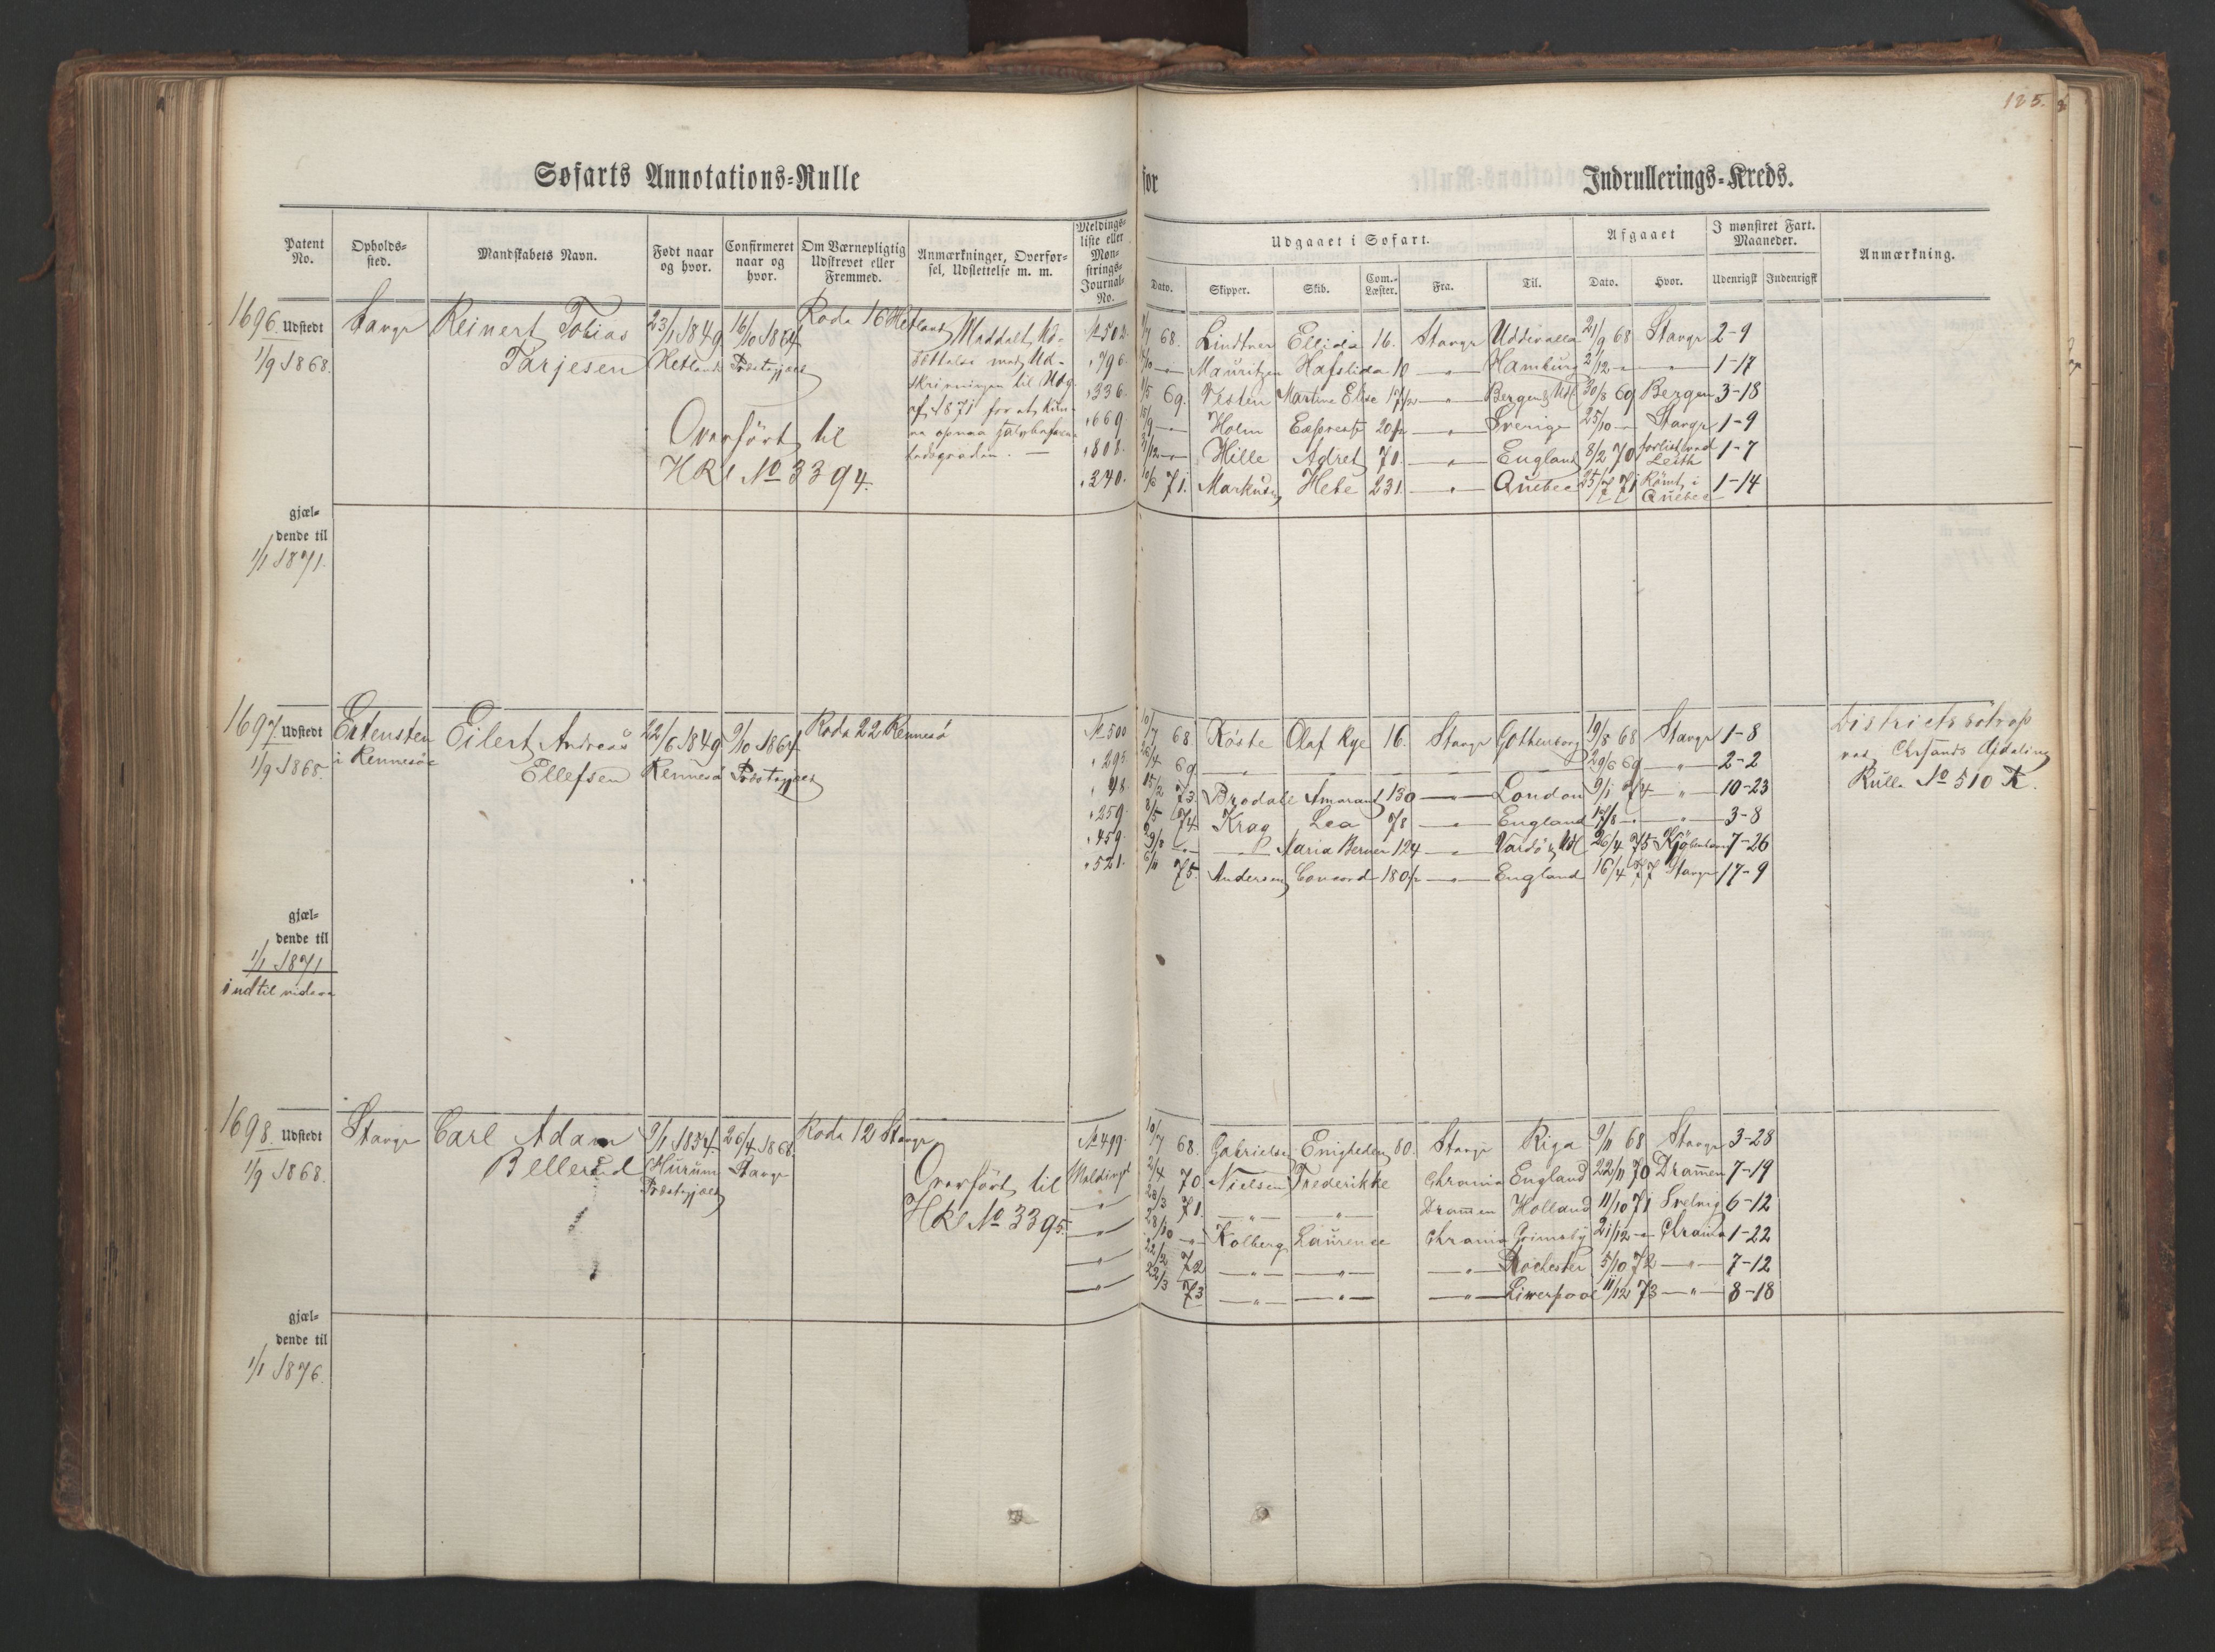 125.
Søfarts Annotations-Rulle
for
Indrullerings-Kreds.
Patent No.
Opholds-sted.
Mandskabets Navn.
Født naar og hvor.
Confirmeret naar og hvor.
Om Værnepligtig Udskrevet eller Fremmed.
Anmærkninger, Overførsel, Udslettelse m. m.
Meldings-liste eller Mønstrings-Journal-No.
Udgaaet i Søfart.
Dato.
Skipper.
Skib.
Com.-Læster.
Fra.
Til.
Afgaaet
Dato.
Hvor.
I mønstret Fart. Maaneder.
Udenrigsk
Indenrigsk
Anmærkning.
1696. Udstedt 1/9 1868.
Stavgr Reinert Tobias Tarjesen
23/1 1849 Hetland
16/10 1864 Præstegjæld
Rode 16 Hetland
Overført til
HRl No 3394.
gjæl-
dende til
1/1 1871.
No 502. 68. Lindtner Ellida 16. Stavgr Uddevalla 21/9 68 Stavgr 2-9
" 796. Mauritzen Hafslida 10 — " — Hamburg 2/12 — " — 1-17
" 336. 69. Martine Elise — " — Bergen & Udl 30/8 69 Bergen 3-18
" 669 15/9 — " — Holm Express 20 — " — Sverige 25/10 — " — Stavgr 1-9
" 808. 31/12 — " — Hille Adret 70. — " — England 8/2 70 forlist ved Leith 1-7
" 340. 10/6 71. Markusen Hebe 231. — " — Quebec 25/7 71 Römt i Quebec 1-14
1697. Udstedt 1/9 1868.
i Rennesøe
Eilert Andreas Ellefsen
22/6 1849 Rennesø
9/10 1864 Præstegjæld
Rode 22 Rennesø
gjæl-
dende til
1/1 1871
indtil videre
No 500 10/7 68 Röste Olaf Rye 16. Stavgr Gothenborg 19/8 68 Stavgr 1-8
" 295. 26/4 69 — " — 29/6 69 — " — 2-2
" 48. 15/2 73. Brodall Amarant 130 — " — London 9/1 74 — " — 10-23
" 259. 8/5 74 Krag Lea 78 — " — England 17/8 — " — 3-8
" 459. 29/8 — " — Maria Berner 124 — " — Vardö & Udl 26/4 75 Kjöbenhavn 7-26
" 521. 6/11 75. Andersen Concord 180 — " — England 16/4 77 Stavgr 17-9
ved Chrsands Afdeling
Rulle No 510 K.
1698. Udstedt 1/9 1868.
Stavgr Carl Adam Bellerud
9/1 1854. Hurum Præstegjæld
26/4 1868. Stavgr
Rode 12 Stavgr
Overført til
HRl No 3395.
gjæl-
dende til
1/1 1876.
No 499. 10/7 68. Gabrielsen Enigheden 80. Stavgr Riga 9/11 68 Stavgr 3-28
2/4 70 Nielsen Frederikke Chrania England 22/11 70 Drammen 7-19
— " — 28/3 71. — " — — " — Drammen Holland 11/10 71 Svelvig 6-12
— " — 28/10 — " — Kolberg Laurense Chrania Grimsby 21/12 — " — Chrania 1-22
— " — 22/2 72 — " — — " — — " — Rochester 5/10 72 — " — 7-12
— " — 22/3 73 — " — — " — — " — Liwerpool 11/12 73 — " — 8-18